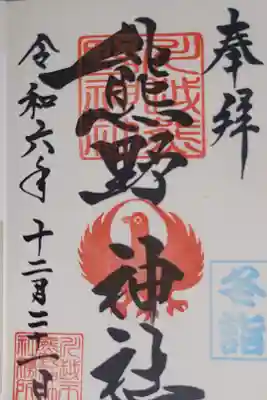 奉拝
冬詣
熊野神社
令和六年十二月二十一日